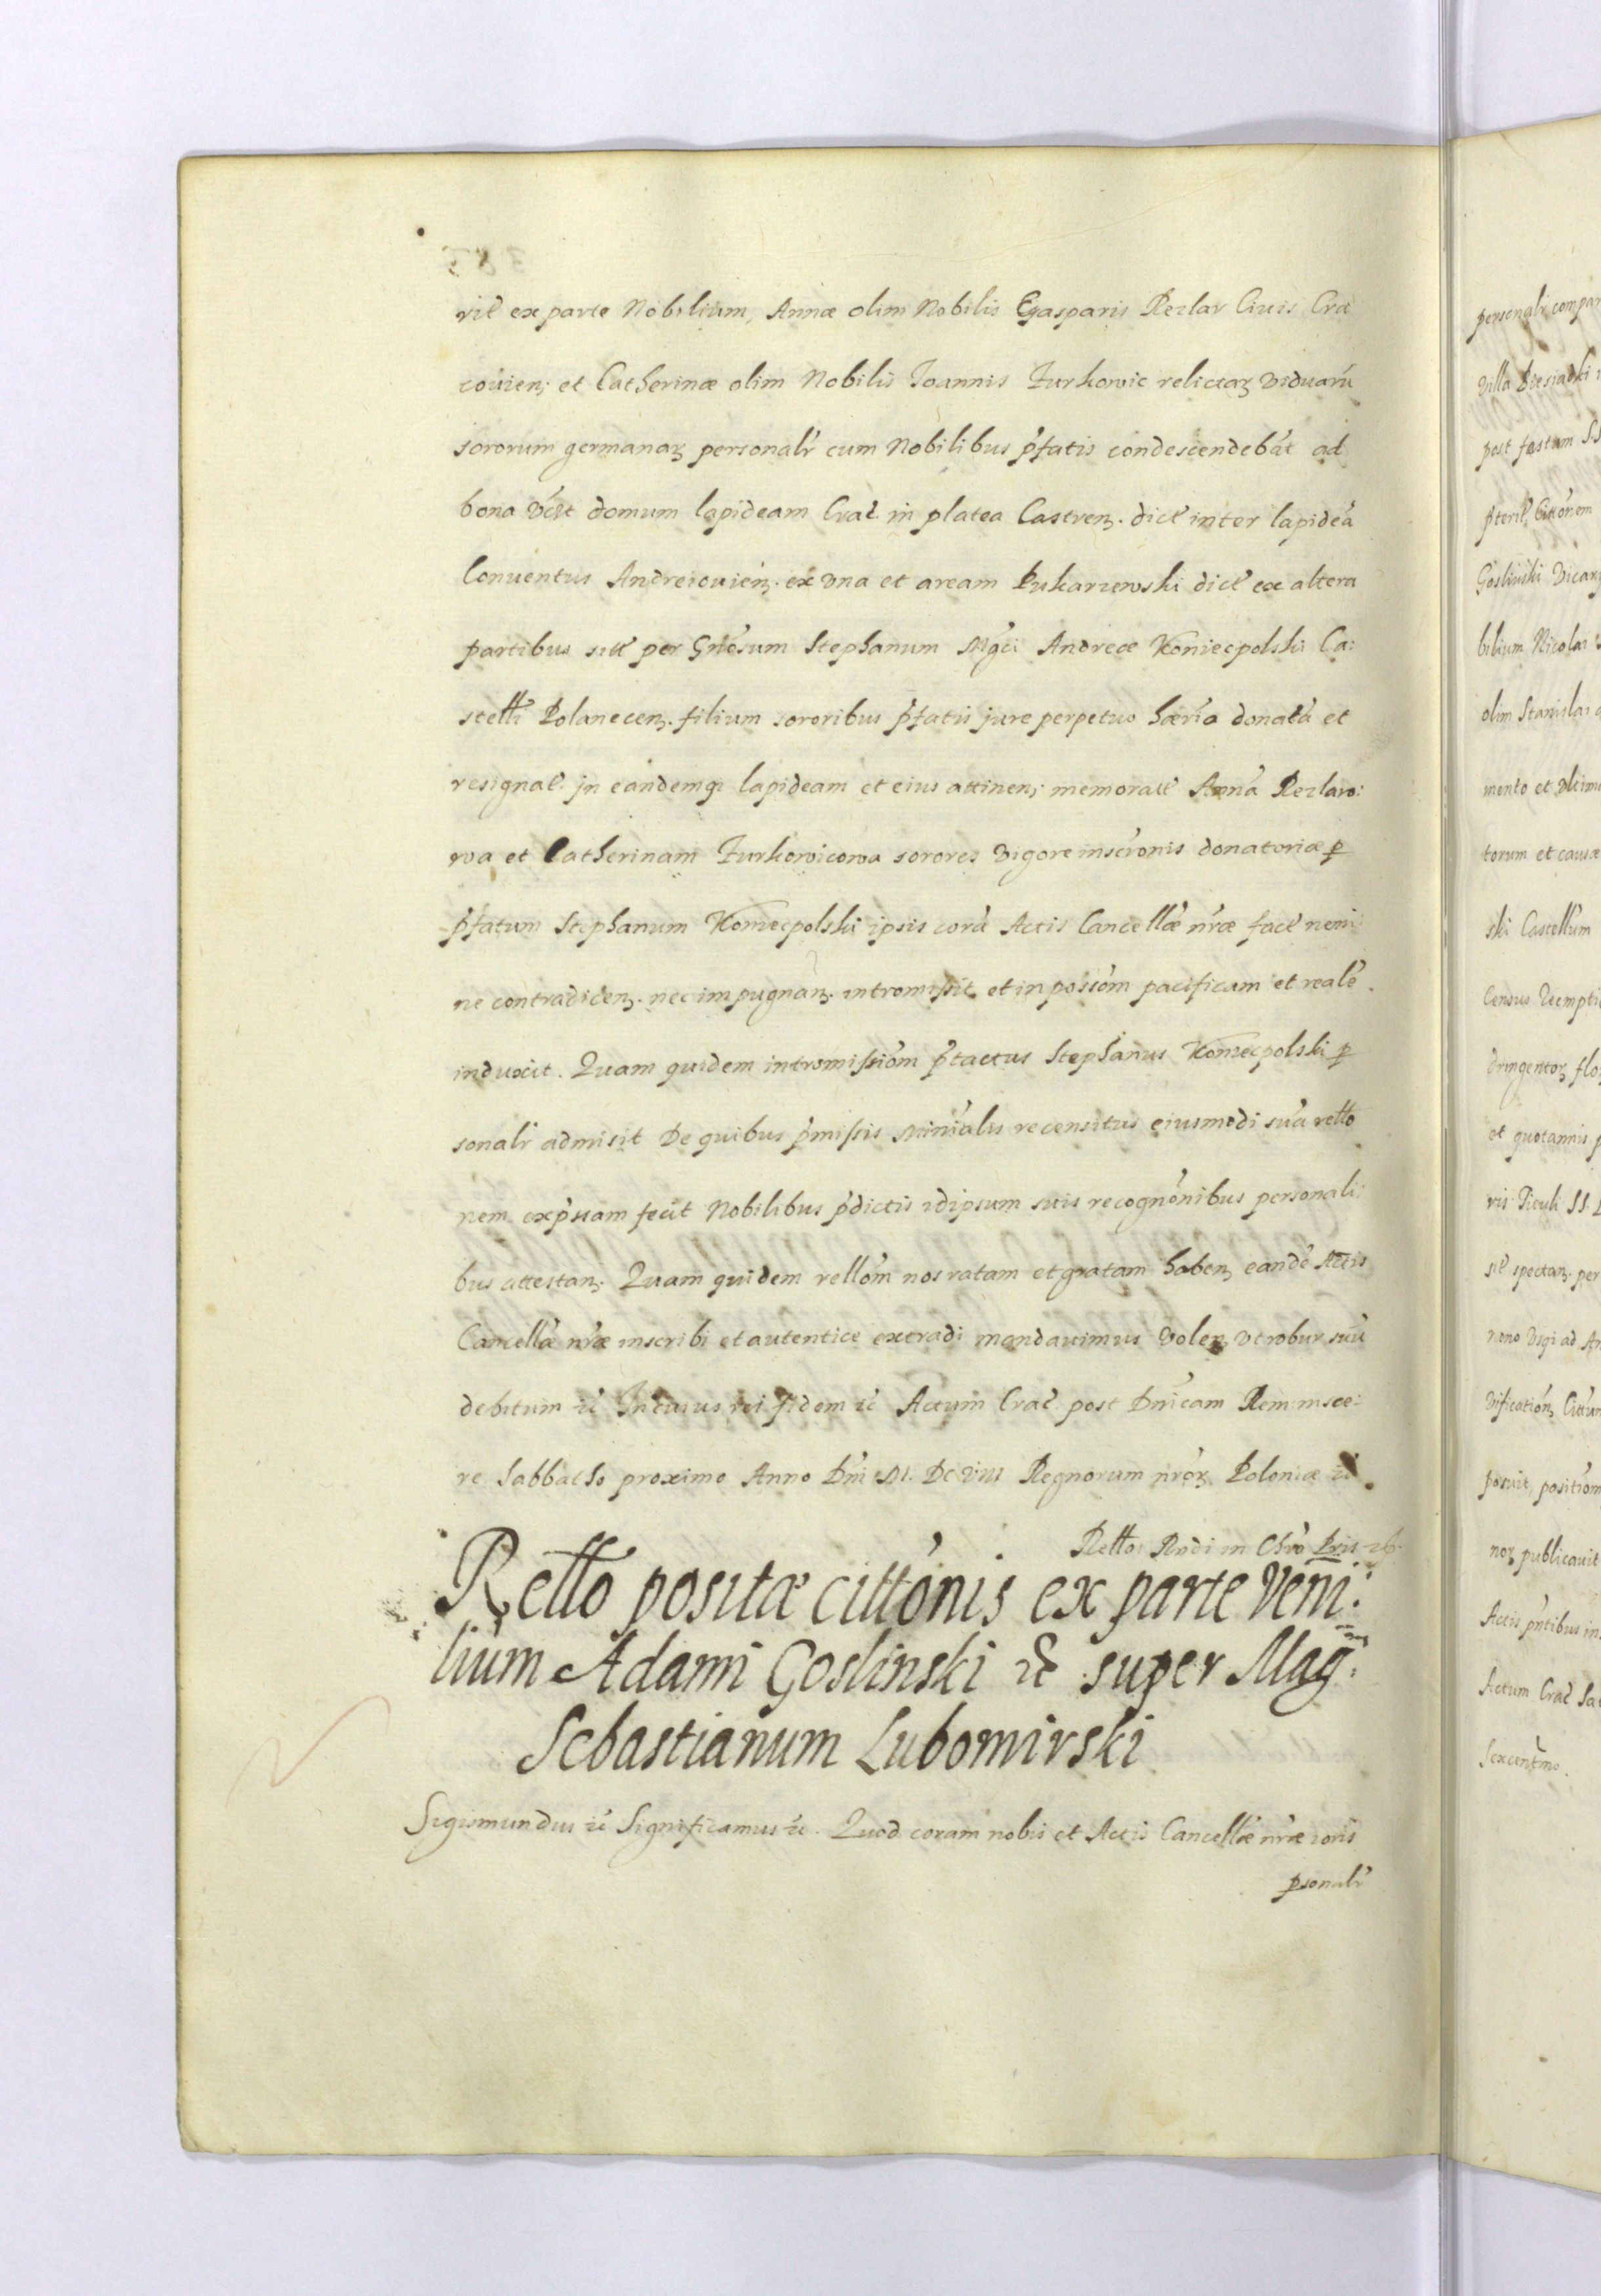 rit ex parte Nobilium, Annæ olim Nobilis Gasparis Rezlar Ciuis Cra
couien: et Catherinæ olim Nobilis Joannis Turkowic relictaꝝ viduarũ
sororum germanaꝝ personalr cum Nobilibus p̃fatis condescendebãt ad
bona vĩꝫt domum lapideam Crac̃ in platea Castren̄. dict̃ inter lapideã
Conuentus Andreiouien̄. ex vna et aream Pukarzewski dict̃ ex altera
partibus sitt̃ per Gñosum Stephanum Mg̃ci Andreæ Koniecpolski Ca:
stelli Polanecen̄. filium sororibus p̃fatis jure perpetuo hæriõ donatã et
resignat̃. jn eandemqꝫ lapideam et eius attinen: memoratt̃ Annã Rezlaro:
wa et Catherinam Turkowicowa sorores vigore inscr̃onis donatoriæ ꝑ
p̃fatum Stephanum Koniecpolski ipsis corã Actis Cancellæ nr̃æ fact̃ nemi:
ne contradicen̄. nec impugnan̄. intromisit et in posiõm pacificam et realẽ
induxit. Quam quidem intromissiõm p̃tactus Stephanus Koniecpolski ꝑ
sonalr admisit De quibus p̃missis Miniãlis recensitus eiusmodi suã rello
nem exp̃ssam fecit Nobilibus p̃dictis idipsum suis recognõnibus personali:
bus attestan̄. Quam quidem rellõm nos ratam et gratam haben̄ eandẽ Actis
Cancellæ nr̃æ inscribi et autentice extradi mandauimus volen̄ vt robur suũ
debitum ꝛc̃ In cuius rei fidem ꝛc̃ Actum Crac̃ post Dñicam Reminisce:
re Sabbatho proximo Anno Dñi M. DC VIII Regnorum nr̃oꝝ Poloniæ ꝛc̃
Rello: Rndi in Chr̃o Pris
Rello positæ cittõnis ex parte Veni:
lium Adami Goslinski ꝛc̃ super Mag:
Sebastianum Lubomirski
Sigismundus ꝛc̃ Significamus ꝛc̃. Quod coram nobis et Actis Cancellæ nr̃æ ioris
ꝑsonalr̃
personalr compar
villa
post festum
p̃terit̃ Cittõnem
Goslinski Vicar
bilium Nicolai
olim Stanislai
mento et vltima
torum et causæ
ski Castellum
Census reempti
dringentoꝝ flo
et quotannis p
ris Tituli SS.
sit̃ spectan̄. per
nono vsqꝫ ad An
posuit, positiõm
noꝝ publicauit
Actis p̃ntibus in
Actum Crac̃ Sa
Sexcentmo.